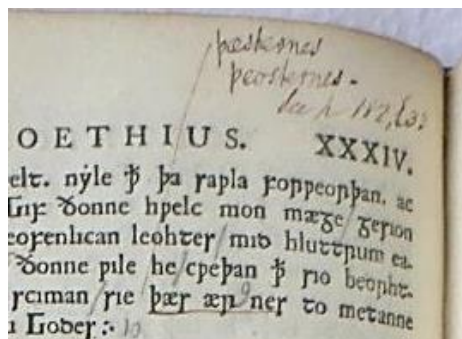 þæsternes
þeosternes.
OETHIUS. XXXIV.
elt. nẏle ꝥ þa saƿla forƿeorþan. ac
Gif ðonne hƿelc mon mæge gesion
eofenlican leohtes mid hluttrum ea-
ðonne ƿile he cƿeþan ꝥ sio beorht-
sciman sie þæs ærnes to metanne
Godes:·